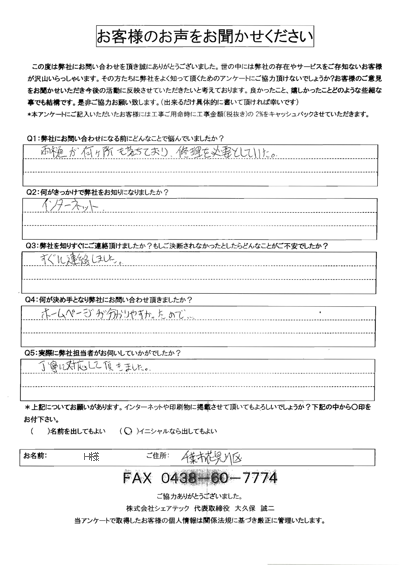 お客様のお声をお聞かせください
この度は弊社にお問い合わせを頂き誠にありがとうございました。世の中には弊社の存在やサービスをご存知ないお客様
が沢山いらっしゃいます。その方たちに弊社をよく知って頂くためのアンケートにご協力頂けないでしょうか?お客様のご意見
をお聞かせいただき今後の活動に反映させていただきたいと考えております。良かったこと、嬉しかったことどのような些細な
事でも結構です。是非ご協力お願い致します。（出来るだけ具体的に書いて頂ければ幸いです）
*本アンケートにご記入いただいたお客様には工事ご用命時に工事金額(税抜き)の2%をキャッシュバックさせていただきます。
Q1：弊社にお問い合わせになる前にどんなことで悩んでいましたか？
雨樋が何ヶ所も落ちており、修理を必要としていた。
Q2：何がきっかけで弊社をお知りになりましたか？
インターネット
Q3：弊社を知りすぐにご連絡頂けましたか？もしご決断されなかったとしたらどんなことがご不安でしたか？
すぐに連絡しました。
Q4：何が決め手となり弊社にお問い合わせ頂きましたか？
ホームページが分かりやすかったので…
Q5：実際に弊社担当者がお伺いしていかがでしたか？
丁寧に対応して頂きました。
＊上記についてお願いがあります。インターネットや印刷物に掲載させて頂いてもよろしいでしょうか？下記の中から○印を
お付下さい。
（　）名前を出してもよい　（○）イニシャルなら出してもよい
お名前：　H様　ご住所：　千葉市花見川区
FAX 0438-60-7774
ご協力ありがとうございました。
株式会社シェアテック 代表取締役 大久保 誠二
当アンケートで取得したお客様の個人情報は関係法規に基づき厳正に管理いたします。